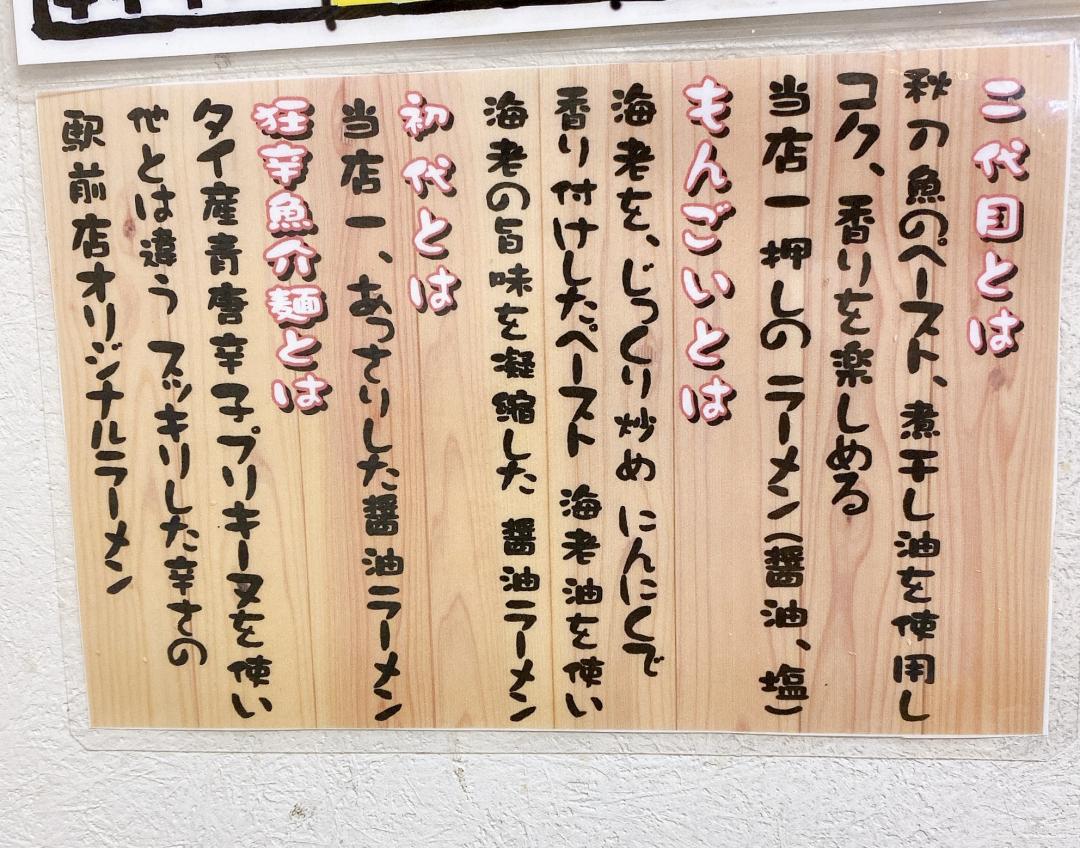 二代目とは
秋の魚のペースト、煮干し油を使用し
コク、香りを楽しめる
当店一押しの ラーメン(醤油、塩)
もんごいとは
海老を、じっくり炒め にんにくで
香り付けしたペースト 海老油を使い
海老の旨味を凝縮した 醤油ラーメン
初代とは
当店一、あっさりした醤油ラーメン
狂辛魚介麺とは
タイ産青唐辛子プリキーヌを使い
他とは違う スッキリした辛さの
駅前店オリジナルラーメン